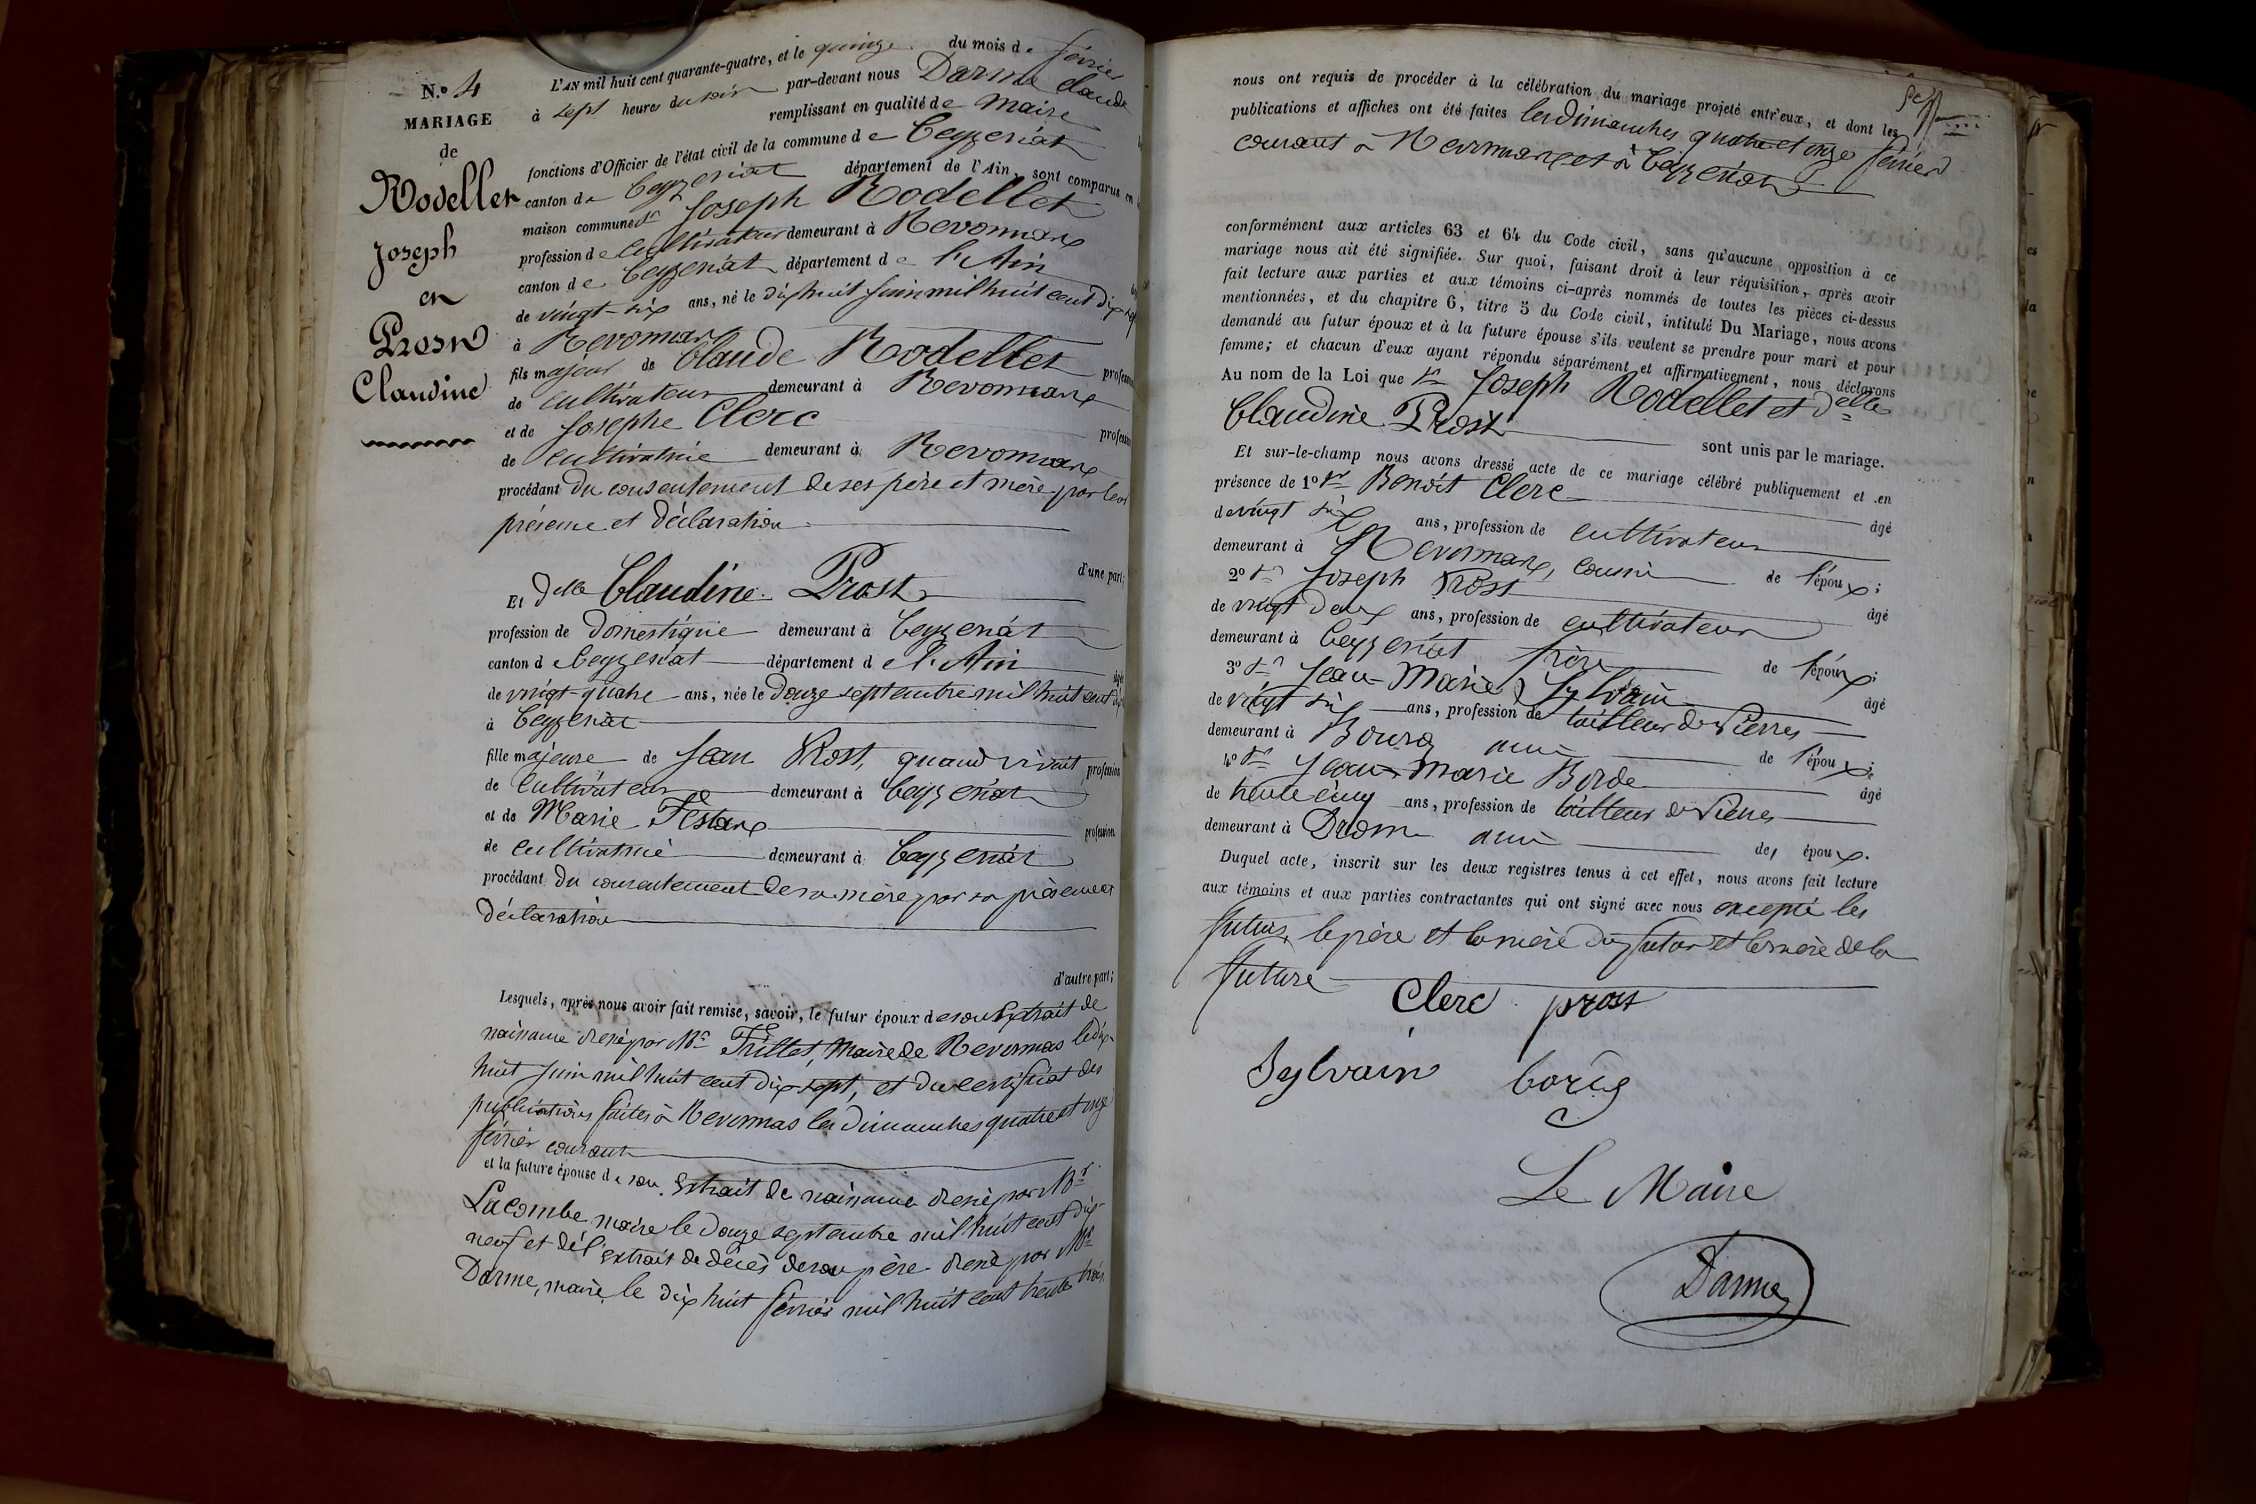 N.º 4
MARIAGE
de
Rodellet
Joseph
en
Prost
Claudine
L'AN mil huit cent quarante-quatre, et le quinze du mois de février
à sept heures du soir par-devant nous Darme Claude
remplissant en qualité de Maire
fonctions d'Officier de l'état civil de la commune de Ceyzeriat
canton de Ceyzeriat département de l'Ain, sont comparus en
maison commune Sr Joseph Rodellet
profession de Cultivateur demeurant à Revonnax
canton de Ceyzeriat département de l'Ain
de vingt-six ans, né le dix huit juin mil huit cent dix sept
à Revonnax
fils majeur de Claude Rodellet profession
de cultivateur demeurant à Revonnax
et de Josephe Clerc profession
de cultivatrice demeurant à Revonnax
procédant du consentement de ses père et mère par leur
présence et déclaration
d'une part;
Et Delle Claudine Prost
profession de Domestique demeurant à Ceyzeriat
canton de Ceyzeriat département de l'Ain âgée
de vingt-quatre ans, née le Douze septembre mil huit cent dix
à Ceyzeriat
fille majeure de Jean Prost, quand vivait profession
de Cultivateur demeurant à Ceyzeriat
et de Marie Festaz profession
de cultivatrice demeurant à Ceyzeriat
procédant du consentement de sa mère par sa présence et
déclaration
d'autre part;
Lesquels, après nous avoir fait remise, savoir, le futur époux de son Extrait de
naissance dressé par Mr Frillet, Maire de Revonnas le dix-
huit juin mil huit cent dix-sept, et du certificat des
publications faites à Revonnas les dimanches quatre et onze
février courant
et la future épouse de son Extrait de naissance dressé par Mr
Lacombe maire le douze septembre mil huit cent dix-
neuf et de l'extrait de décès de son père dressé par Mr
Darme, maire le dix huit février mil huit cent trente trois
nous ont requis de procéder à la célébration du mariage projeté entr'eux, et dont les
publications et affiches ont été faites les dimanches quatre et onze février
courant à Revonnax et à Ceyzeriat
conformément aux articles 63 et 64 du Code civil, sans qu'aucune opposition à ce
mariage nous ait été signifiée. Sur quoi, faisant droit à leur réquisition, après avoir
fait lecture aux parties et aux témoins ci-après nommés de toutes les pièces ci-dessus
mentionnées, et du chapitre 6, titre 5 du Code civil, intitulé Du Mariage, nous avons
demandé au futur époux et à la future épouse s'ils veulent se prendre pour mari et pour
femme; et chacun d'eux ayant répondu séparément et affirmativement, nous déclarons
Au nom de la Loi que Sr Joseph Rodellet et Delle
Claudine Prost sont unis par le mariage.
Et sur-le-champ nous avons dressé acte de ce mariage célébré publiquement et en
présence de 1º Sr Benoît Clerc âgé
de vingt six ans, profession de cultivateur
demeurant à Revonnax, cousin de l'époux;
2º Sr Joseph Prost âgé
de vingt deux ans, profession de cultivateur
demeurant à Ceyzeriat frère de l'épouse;
3º Sr Jean-Marie Sylvain âgé
de vingt six ans, profession de tailleur de Pierres
demeurant à Bourg ami de l'époux;
4º Sr Jean-Marie Borde âgé
de trente cinq ans, profession de tailleur de Pierres
demeurant à Drom ami des époux.
Duquel acte, inscrit sur les deux registres tenus à cet effet, nous avons fait lecture
aux témoins et aux parties contractantes qui ont signé avec nous excepté les
futurs, le père et la mère du futur et la mère de la
future
Clerc prost
Sylvain
Le Maire
Darme